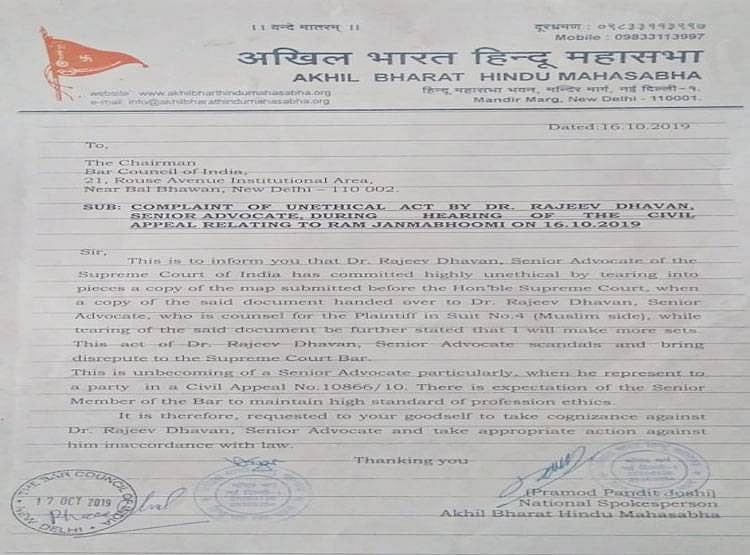 ।। वन्दे मातरम् ।।
दूरभ्रमण : ०९८३३११३९९७
Mobile : 09833113997
अखिल भारत हिन्दू महासभा
AKHIL BHARAT HINDU MAHASABHA
website www.akhilbharthindumahasabha.org
e-mail info@akhilbharathindumahasabha.org
हिन्दू महासभा भवन, मन्दिर मार्ग, नई दिल्ली-१.
Mandir Marg, New Delhi - 110001.
Dated:16.10.2019
To,
The Chairman
Bar Council of India,
21, Rouse Avenue Institutional Area,
Near Bal Bhawan, New Delhi – 110 002.
SUB: COMPLAINT OF UNETHICAL ACT BY DR. RAJEEV DHAVAN,
SENIOR ADVOCATE, DURING HEARING OF THE CIVIL
APPEAL RELATING TO RAM JANMABHOOMI ON 16.10.2019
Sir,
This is to inform you that Dr. Rajeev Dhavan, Senior Advocate of the
Supreme Court of India has committed highly unethical by tearing into
pieces a copy of the map submitted before the Hon'ble Supreme Court, when
a copy of the said document handed over to Dr. Rajeev Dhavan, Senior
Advocate, who is counsel for the Plaintiff in Suit No.4 (Muslim side), while
tearing of the said document be further stated that I will make more sets.
This act of Dr. Rajeev Dhavan, Senior Advocate scandals and bring
disrepute to the Supreme Court Bar.
This is unbecoming of a Senior Advocate particularly, when he represent to
a party in a Civil Appeal No.10866/10. There is expectation of the Senior
Member of the Bar to maintain high standard of profession ethics.
It is therefore, requested to your goodself to take cognizance against
Dr. Rajeev Dhavan, Senior Advocate and take appropriate action against
him inaccordance with law.
Thanking you
THE BAR COUNCIL OF INDIA
17 OCT 2019
NEW DELHI
(Pramod Pandit Joshi)
National Spokesperson
Akhil Bharat Hindu Mahasabha